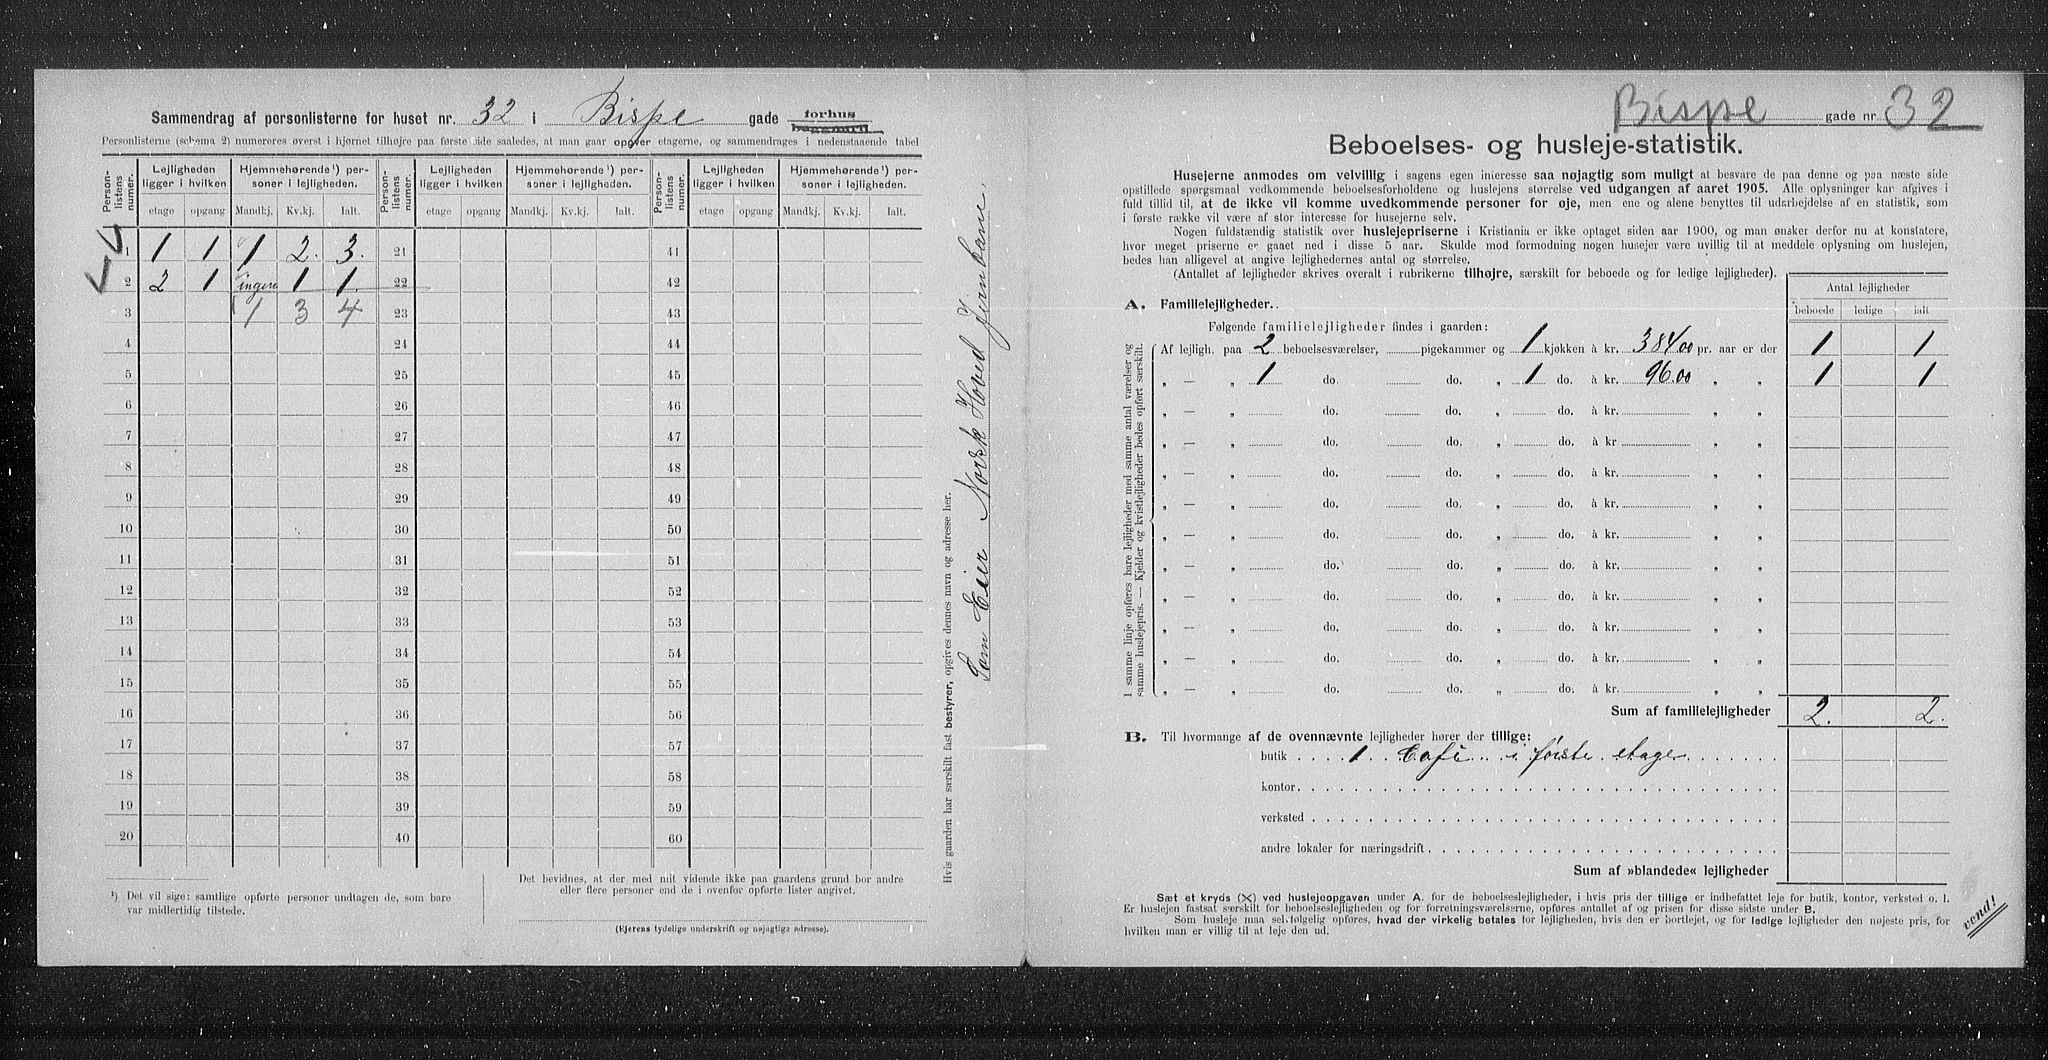 Sammendrag af personlisterne for huset nr. 32 i Bispe gade forhus baggaard
Personlisterne (schema 2) numereres øverst i hjørnet tilhøjre paa første side saaledes, at man gaar opgver etagerne, og sammendrages i nedenstaaende tabel
Person-listens numer. Lejligheden ligger i hvilken Hjemmehørende¹) personer i lejligheden. Person-listens numer. Lejligheden ligger i hvilken Hjemmehørende¹) personer i lejligheden. Person-listens numer. Lejligheden ligger i hvilken Hjemmehørende¹) personer i lejligheden.
etage opgang Mandkj. Kv.kj. Ialt. etage opgang Mandkj. Kv.kj. Ialt. etage opgang Mandkj. Kv.kj. Ialt.
1 1 1 1 2. 3. 21 41
2 2 1 ingen 1 1. 22 42
3 1 3 4 23 43
4 24 44
5 25 45
6 26 46
7 27 47
8 28 48
9 29 49
10 30 50
11 31 51
12 32 52
13 33 53
14 34 54
15 35 55
16 36 56
17 37 57
18 38 58
19 39 59
20 40 60
¹) Det vil sige: samtlige opførte personer undtagen de, som bare
var midlertidig tilstede.
Det bevidnes, at der med mit vidende ikke paa gaardens grund bor andre
eller flere personer end de i ovenfor opførte lister angivet.
(Ejerens tydelige underskrift og nøjagtige adresse).
Hvis gaarden har særskilt fast bestyrer, opgives dennes navn og adresse her.
Som Eier Norsk Hoved Jernbane.
Bispe gade nr 32
Beboelses- og husleje-statistik.
Husejerne anmodes om velvillig i sagens egen interesse saa nøjagtig som muligt at besvare de paa denne og paa næste side
opstillede spørgsmaal vedkommende beboelsesforholdene og huslejens størrelse ved udgangen af aaret 1905. Alle oplysninger kar afgives i
fuld tillid til, at de ikke vil komme uvedkommende personer for øje, men ene og alene benyttes til udarbejdelse af en statistik, som
i første række vil være af stor interesse for husejerne selv.
Nogen fuldstændig statistik over huslejepriserne i Kristiania er ikke optaget siden aar 1900, og man ønsker derfor nu at konstatere,
hvor meget priserne er gaaet ned i disse 5 aar. Skulde mod formodning nogen husejer være uvillig til at meddele oplysning om huslejen,
bedes han alligevel at angive lejlighedernes antal og størrelse.
(Antallet af lejligheder skrives overalt i rubrikerne tilhøjre, særskilt for beboede og for ledige lejligheder).
Antal lejligheder
beboede ledige ialt
A. Familielejligheder.
Følgende familielejligheder findes i gaarden:
Af lejligh. paa 2 beboelsesværelser, pigekammer og 1 kjøkken à kr. 384.00 pr. aar er der 1 1
„ — „ 1 do. do. „ 1 do. à kr. 96.00 „ „ 1 1
„ — „ do. do. „ do. à kr. „ „
„ — „ do. do. „ do. à kr „ „
„ — „ do. do. „ do. à kr. „ „
„ — „ do. do. „ do. à kr. „ „
„ — „ do. do. „ do. à kr. „ „
„ — „ do. do. „ do. à kr. „ „
„ — „ do. do. „ do. à kr. „ „
„ — „ do. do. „ do. à kr. „ „
„ — „ do. do. „ do. à kr. „ „
„ — „ do. do. „ do. à kr. „ „
I samme linje opføres bare lejligheder med samme antal værelser og
samme huslejepris. — Kjelder og kvistlejligheder bedes opført særskilt.
Sum af familielejligheder 2. 2.
B. Til hvormange af de ovennævnte lejligheder hører der tillige:
butik 1 Cafe i første etage
kontor
verksted
andre lokaler for næringsdrift
Sum af »blandede« lejligheder
Sæt et kryds (X) ved huslejeopgaven under A. for de beboelseslejligheder, i hvis pris der tillige er indbefattet leje for butik, kontor, verksted o. l.
Er huslejen fastsat særskilt for beboelseslejligheden og for forretningsværelserne, opføres antallet af og prisen for disse sidste under B.
Som husleje maa selvfølgelig opføres, hvad der virkelig betales for lejligheden, hvis den er bortlejet, og for ledige lejligheder den nøjeste pris, for
hvilken man er villig til at leje den ud.
vend!